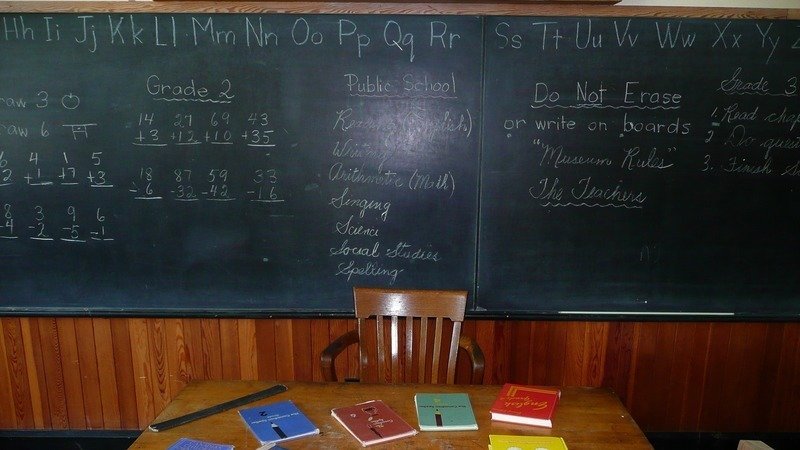 Hh Ii Jj Kk Ll Mm Nn Oo Pp Qq Rr Ss Tt Uu Vv Ww Xx Yy
raw 3
raw 6
4 1 5
2 +1 +7 +3
8 3 9 6
-4 -2 -5 -1
Grade 2
14 27 69 43
+3 +12 +10 +35
18 87 59 33
-6 -32 -42 -16
Public School
Reading (English)
Writing
Arithmatic (Math)
Singing
Science
Social Studies
Spelling
Do Not Erase
or write on boards
"Museum Rules"
The Teachers
Grade 3
1. Read chap
2 Do ques
3. Finish
2
English